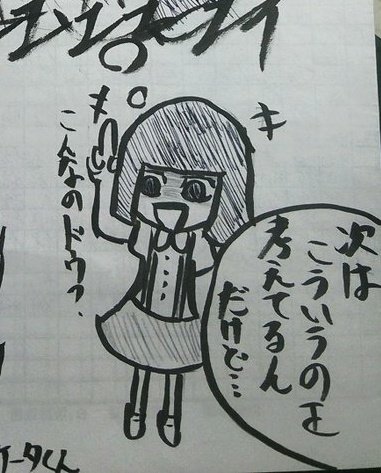 次は
こういうのを
考えてるん
だけど…
こんなのドウっ、
ータくん